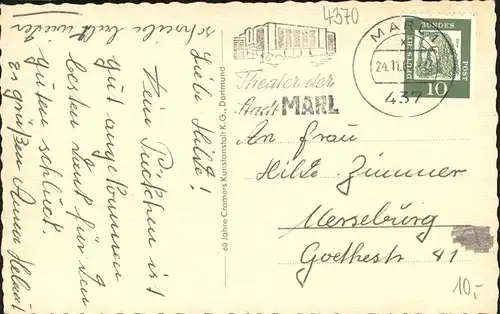 4370
Theater der
Stadt MARL
MARL
24.11.6
437
DEUTSCHE BUNDESPOST
10
Liebe Hilde!
Dein Päckchen ist
gut angekommen
besten Dank für den
guten schluck.
es grüßen Anna Helmut
schreibe bald wieder
60 Jahre Cramers Kunstanstalt K.G., Dortmund
An Frau
Hilde Zimmer
Merseburg
Goethestr 41
10,-